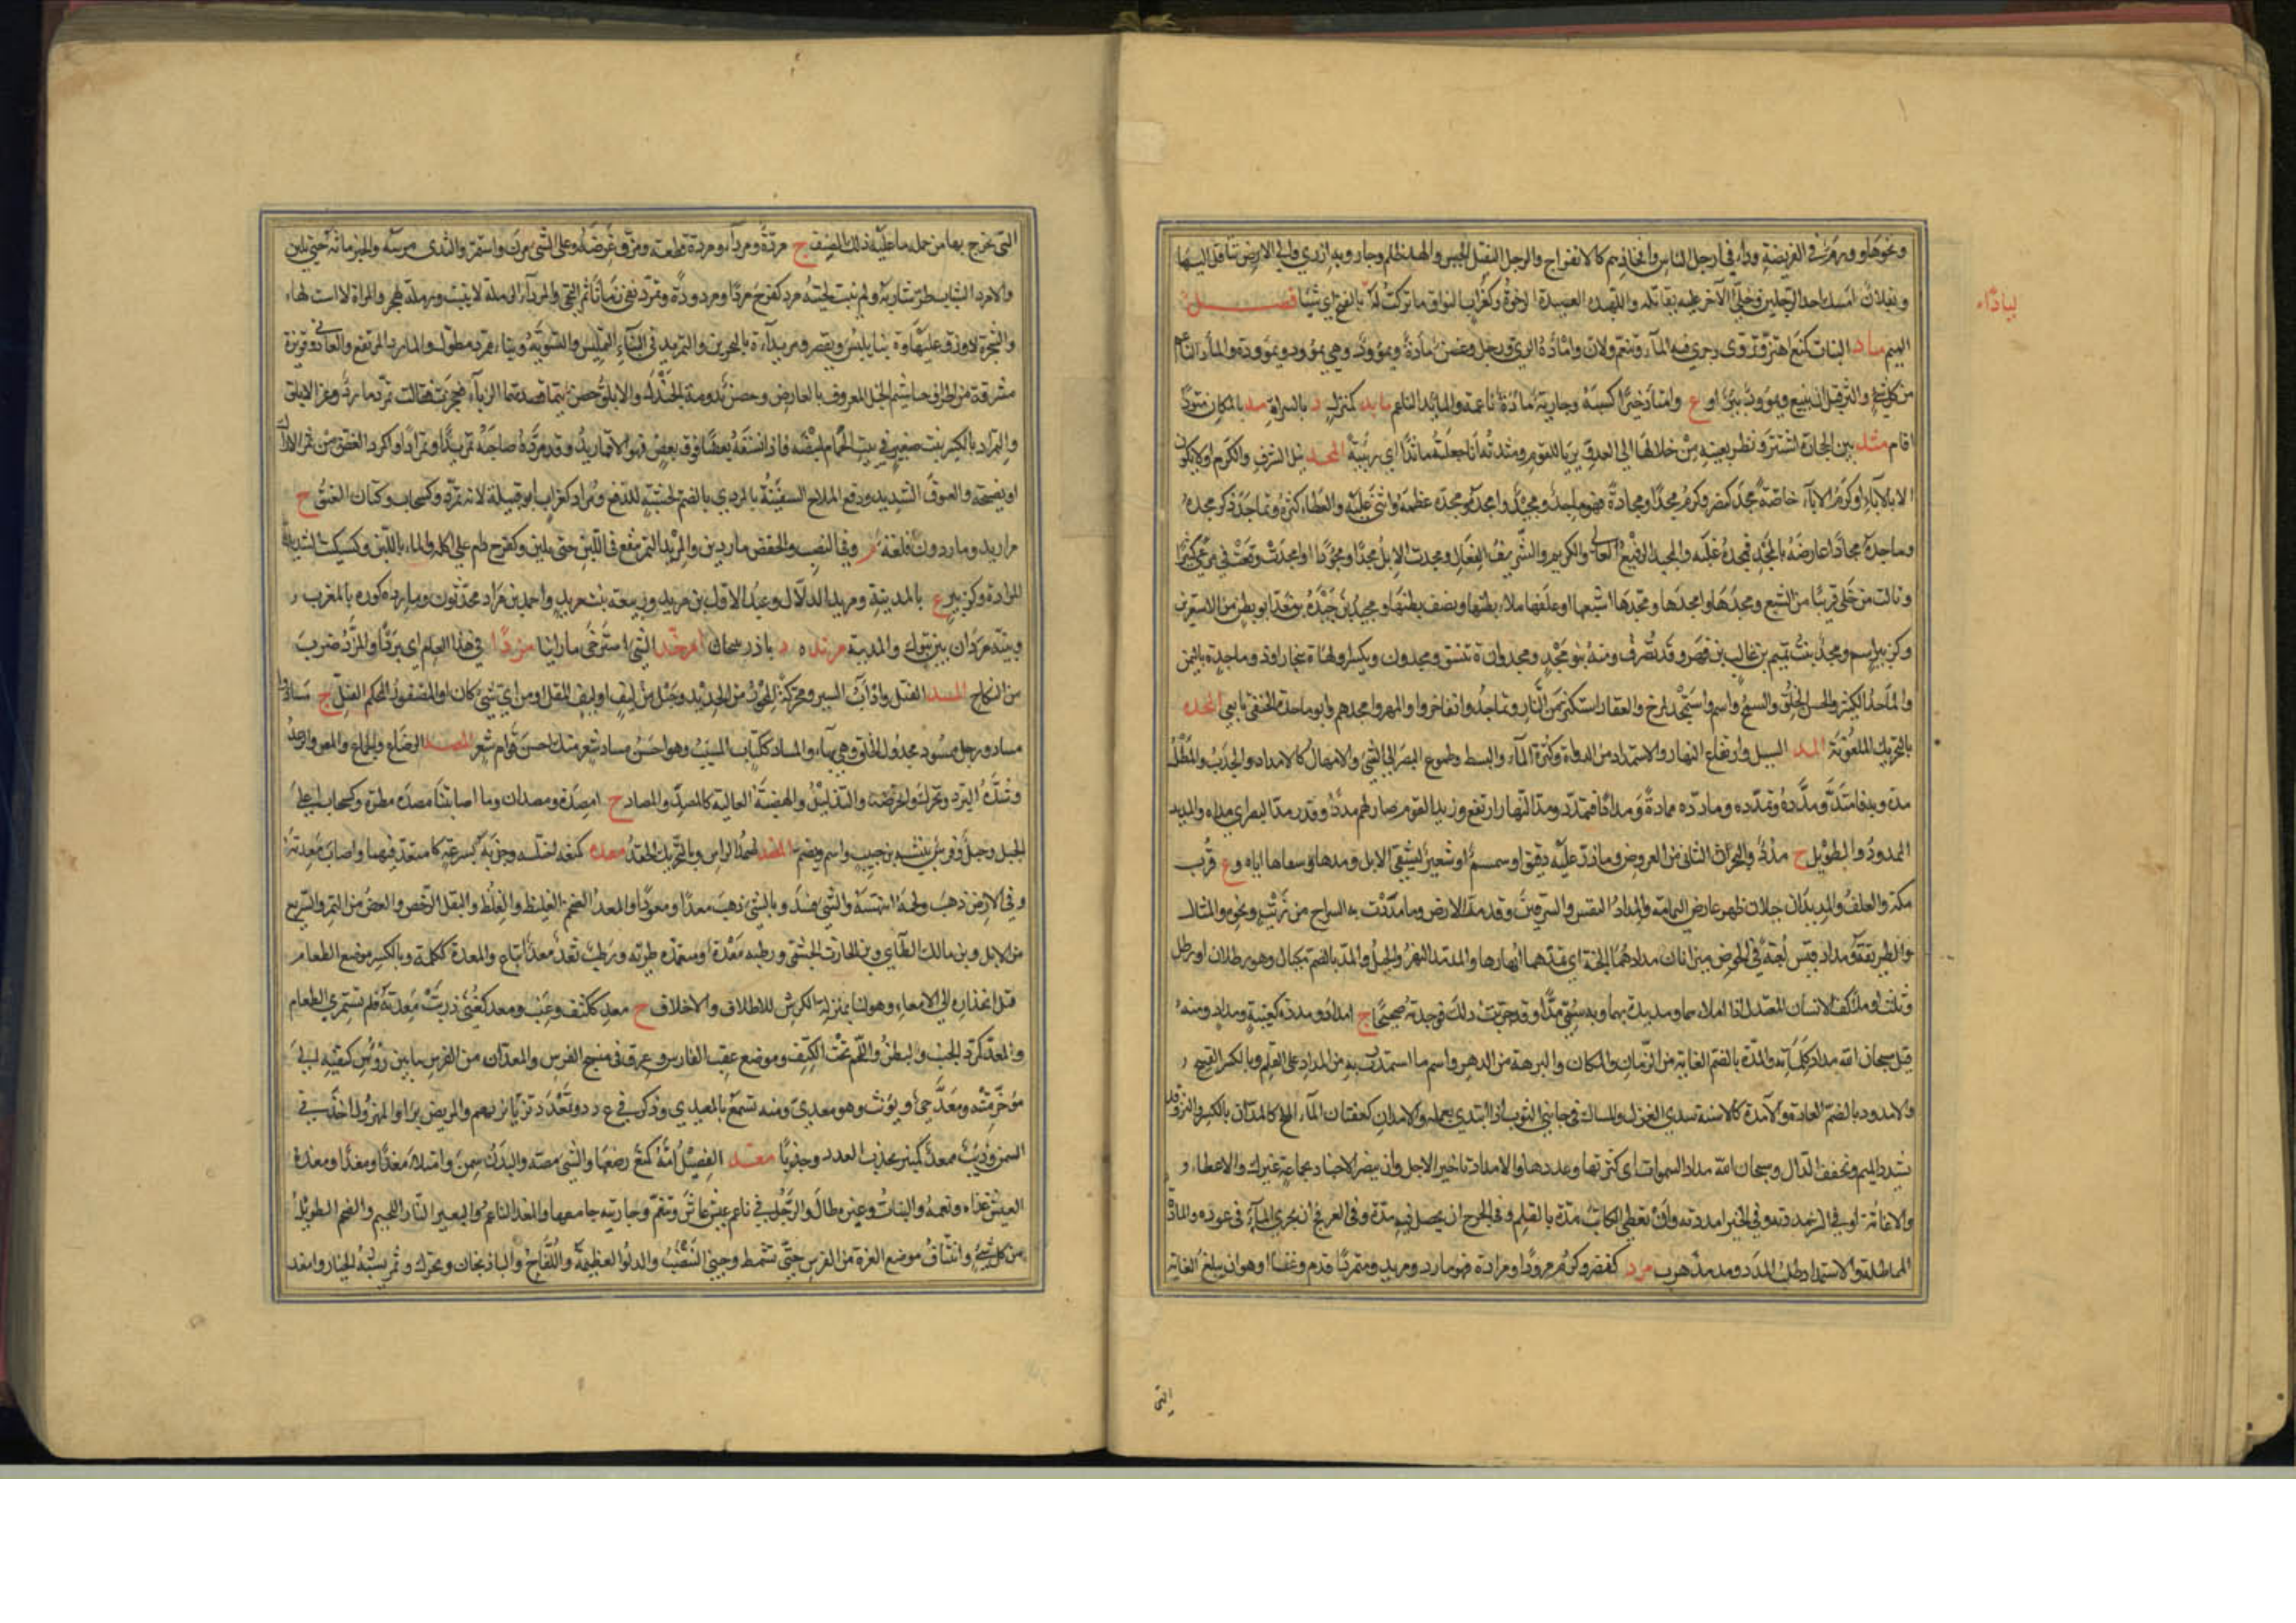 ونحوها وورم في الفريضة وداء في ارجل الناس وافخاذهم كالانفراج والرجل الثقيل الجبس
لبادآء
فصل
الميم ماد النبات كمنع اهتز وتروى وجرى فيه المآء وتنعم ولان
من كل شئ والنز قبل ان ينبع ويمؤود بئر او ع وامتأد خيرا كسبه وجارية مأدة ناعمة والمائد الناعم مابد كمنزل د بالسراة مثد بالمكان مثودا
اقام مثد بين الحجارة استتر ونظر بعينه من خلالها الى العدو يربأ للقوم ومثدته انا جعلته ماثدا اي ربيئة المجد نيل الشرف والكرم او لا يكون
الا بالاباء او كرم الاباء خاصة مجد كنصر وكرم مجدا ومجادة فهو ماجد ومجيد وامجده ومجده عظمه واثنى عليه والعطاء كثره وتماجد ذكر مجده
وماجده مجادا عارضه بالمجد فمجده غلبه والمجيد الرفيع العالي والكريم والشريف الفعال ومجدت الابل مجدا ومجودا وامجدت وقعت في مرعى كثير
ونالت من الخلى قريبا من الشبع ومجدها وامجدها ومجدها اشبعها او علفها ملء بطنها او نصف بطنها
وكزبير اسم ومجد بنت تميم بن غالب بن فهر وقد تصرف ومنه بنو مجد ومجدوان ة بنسف ومجدون وبكسر اوله ة ببخارا
والماجد الكثير والحسن الخلق والسمح واسم واستمجد المرخ والعفار استكثر من النار وتماجدوا تفاخروا وابو ماجدة الحنفي تابعي المخدة
بالتحريك المعونة المد السيل وارتفاع النهار والاستمداد من الدواة وكثرة المآء والبسط وطموح البصر الى الشئ والامهال كالامداد والجذب والمطل
مده وبه فامتد ومدده وتمدده ومادده ممادة ومدادا فتمدد ومد النهار ارتفع وزيد القوم صار لهم مددا وقدر مد البصر اي مداه والمديد
الممدود والطويل ج مدد والبحر الثاني من العروض وما ذر عليه دقيق او سمسم او شعير ليسقى الابل ومدها وسقاها اياه وع قرب
مكة والعلف والمديدان جبلان بظهر عارض اليمامة والمداد النقس والسرقين وقد مد الارض وما مددت به السراج من زيت ونحوه والمثال
والطريقة ومداد قيس لعبة وفي الحوض ميزابان مدادهما الجنة اي تمدهما انهارها والمد النهر والحبل والمد بالضم مكيال وهو رطلان او رطل
وثلث او ملء كف الانسان المعتدل اذا ملأهما ومد يده بهما وبه سمي مدا وقد جربت ذلك فوجدته صحيحا ج امداد ومددة كعنبة ومداد ومنه
قيل سبحان الله مداد كلماته والمدة بالضم الغاية من الزمان والمكان والبرهة من الدهر واسم ما استمددت به من المداد على القلم وبالكسر القيح
والامدود بالضم العادة والامدة كالاسنة سدى الغزل والمساك في جانبي الثوب اذا ابتدئ بعمله والامدان كعفتان المآء الملح كالمدان بالكسر والنز وقد
تشدد الميم وتخفف الدال وسبحان الله مداد السموات اي كثرتها وعددها والامداد تاخير الاجل وان ينصر الاجناد بجماعة غيرك والاعطاء
والاغاثة او في الشر مددته وفي الخير امددته وان تعطي الكاتب مدة بالقلم وفي الجرح ان يحصل فيه مدة وفي العرفج ان يجري المآء في عوده والمادة
المماطلة والاستمداد طلب المدد ومدمد هرب مرد كنصر وكرم مرودا ومرادة فهو مارد ومريد ومتمرد اقدم وعتا او هو ان يبلغ الغاية
التى
التى تخرج بها من جملة ما عليه ذلك الصنف ج مردة ومرداء ومرده قطعه ومزق عرضه وعلى الشئ مرن واستمر والثدى مرسه والخبز ماثه حتى يلين
والامرد الشاب طر شاربه ولم تنبت لحيته مرد كفرح مردا ومرودة وتمرد بقي زمانا ثم التحى والمرداء الرملة لا تنبت ورملة بهجر والمراة لا است لها
والشجرة لا ورق عليها وة بنابلس ويقصر ومريداء ة بالبحرين والتمريد في البناء التمليس والتسوية وبناء ممرد مطول والمارد المرتفع والعاتي وقويرة
مشرفة من اطراف خياشيم الجبل المعروف بالعارض وحصن بدومة الجندل والابلق حصن بتيماء قصدتهما الزباء فعجزت فقالت تمرد مارد وعز الابلق
والتمراد بالكسر بيت صغير في بيت الحمام لمبيضه فاذا نسقه بعضا فوق بعض فهو التماريد وقد مرده صاحبه تمريدا وتمرادا والمرد الغض من ثمر الاراك
او نضيجه والسوق الشديد ودفع الملاح السفينة بالمردي بالضم لخشبة للدفع ومراد كغراب ابو قبيلة لانه تمرد وكسحاب وكتان العنق ج
مراريد وماردون قلعة م وفي النصب والخفض ماردين والمريد التمر ينقع في اللبن حتى يلين وكفرح دام على اكله والماء باللبن وكسكيت الشديد
المرادة وكزبير ع بالمدينة ومريد الدلال وعبد الاول بن مريد وربيعة بنت مريد واحمد بن مراد محدثون وماردة كورة بالمغرب
وثنية مردان بين تبوك والمدينة مرند ه د باذربيجان امرخد الشئ استرخى ما راينا مزدا في هذا العام اي بردا والمزد ضرب
من النكاح المسد الفتل وادآب السير ومحركة المحور من الحديد وحبل من ليف او ليف المقل او من اي شئ كان او المضفور المحكم الفتل ج مساد وامساد
ورجل ممسود مجدول الخلق وهي بهاء والمساد ككتاب المسأب وهو احسن مساد شعر منك احسن قوام شعر المصد الرضاع والجماع والمص والرعد
وشدة البرد ويحرك والحر ضد والتذليل والهضبة العالية كالمصد والمصاد ج امصدة ومصدان وما اصابتنا مصدة مطرة وكسحاب اعلى
الجبل وجبل وفرس نبيشة بن حبيب واسم ويضم المضد ضمد الراس وبالتحريك الحقد معده كمنعه اختلسه وجذبه بسرعة كامتعد فيهما واصاب معدته
وفي الارض ذهب ولحمه انتهسه والشئ فسد وبالشئ ذهب معدا ومعودا والمعد الضخم والغليظ والغلظ والبقل الرخص والغض من التمر والسريع
من الابل وبن مالك الطائي وبن الحارث الجشمي ورطبه معدة ومتمعدة طرية ورطب ثعد معد اتباع والمعدة ككلمة وبالكسر موضع الطعام
قبل انحداره الى الامعاء وهو لنا بمنزلة الكرش للاظلاف والاخفاف ج معد ككتف وعنب ومعد كعني ذربت معدته فلم تستمرئ الطعام
والمعد كمرد الجنب والبطن واللحم تحت الكتف وموضع عقب الفارس وعرق في منسج الفرس والمعدان من الفرس ما بين رؤس كتفيه الى
مؤخر متنه ومعد حي ويؤنث وهو معدي ومنه تسمع بالمعيدي وذكر في ع د د وتمعدد تزيا بزيهم والمريض برا والمهزول اخذ في
السمن وذئب ممعد كمنبر يجذب العدو جذبا مغد الفصيل امه كمنع رضعها والشئ مصه والبدن سمن وامتلأ مغدا ومغدا ومغده
العيش غذاه ونعمه والنبات وغيره طال والرجل في ناعم عيش عاش وتنعم وجاريته جامعها والمغد الناعم والبعير التار اللحيم والضخم الطويل
من كل شئ وانتتاف موضع الغرة من الفرس حتى تشمط وجنى التنضب والدلو العظيمة واللفاح والباذنجان ويحرك وثمر يشبه الخيار وامغد